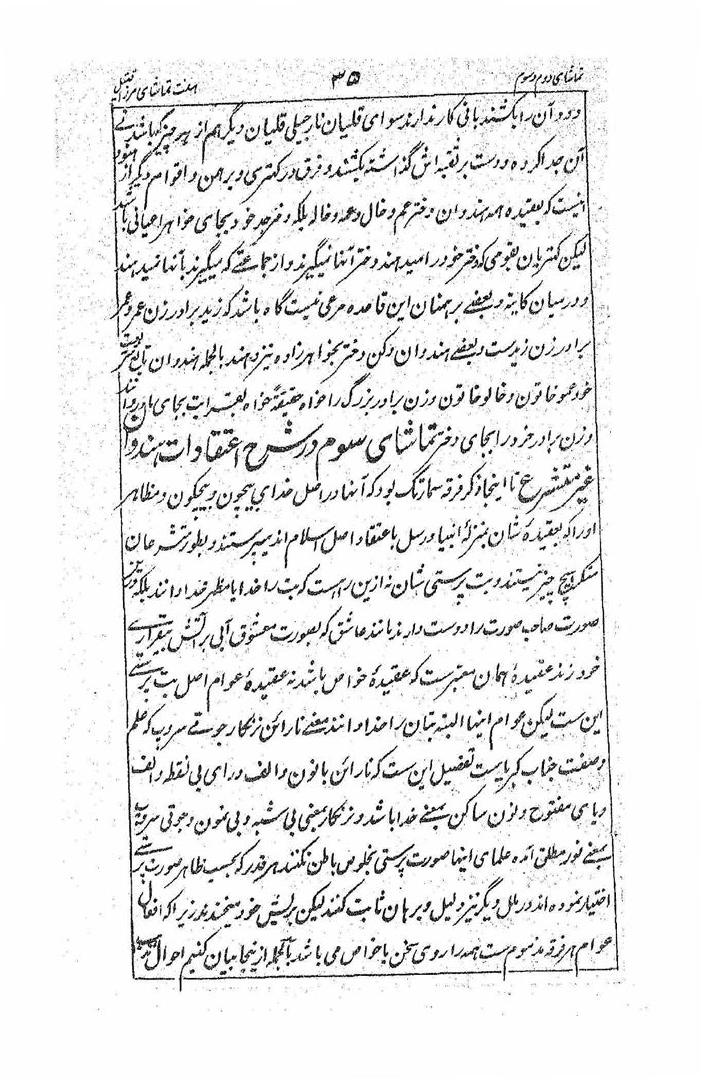 تماشای دوم و سوم ۳۵ هفت تماشای مرزا قتیل
دو دو آن را بکشند بانی کار ندارند سوای قلیان نارجیلی قلیان دیگر هم از هر چیز که باشد نے
آن جدا کرده و دست بر ثقبه اش گذاشته بکشند و فرق در کهتری و برهمن و اقوام دیگر از هنود
اینست که بعقیده همه هندوان دختر عم و خال و عمه و خاله بلکه دختر جد خود بجای خواهر اعیانی باشد
لیکن کهتریان بقومی که دختر خود را میدهند دختر آنها نمیگیرند و از جماعتے که میگیرند بآنها نمیدهند
و درمیان کایته و بعضے برهمنان این قاعده مرعی نیست گاه باشد که زید برادر زن عمرو عمرو
برادر زن زیدست و بعضے هندوان دکن دختر بخواهرزاده نیز دهند بالجمله هندوان تابع
خود عمو خاتون و خالو خاتون و زن برادر بزرگ را خواه حقیقةً خواه بقرابت بجای مادر دانند
و زن برادر خرد را بجای دختر تماشای سوم در شرح اعتقادات هندوان
غیر متشرع تا اینجا ذکر فرقه سمارتگ بود که آنها در اصل خدای بیچون و بیچگون و مظاهر
او را که بعقیدهٔ شان بمنزلهٔ انبیا و رسل باعتقاد اصل اسلام اند میپرستند و بطور متشرعان
منکر هیچ چیز نیستند و بت پرستی شان نه ازین راهست که بت را خدا یا مظهر خدا دانند بلکه
صورت صاحب صورت را دوست دارند مانند عاشق که بصورت معشوق آبی بر آتش بیقراری
خود زند عقیدهٔ همان معتبرست که عقیدهٔ خواص باشد نه عقیدهٔ عوام اصل بت پرستے
این ست لیکن عوام اینها البته بتان را خدا دانند معنے نارائن نرنکار جوتے سروپ که علم
و صفت جناب کبریاست تفصیل این ست که نارائن بانون و الف و رای بی نقطه و الف
و یای مفتوح و نون ساکن بمعنے خدا باشد و نرنکار بمعنی بی شبه و بی نمون و جوتی سروپ
بمعنے نور مطلق آمده علمای اینها صورت پرستی بخلوص باطن نکنند هر قدر که بحسب ظاهر صورت پرستے
اختیار نموده اند در ملل دیگر نیز دلیل و برهان ثابت کنند لیکن پریش خود میخندند زیرا که افعال
عوام هر فرقه مذموم ست همه را روی سخن با خواص می باشد بالجمله از اینجا بیان کنیم احوال